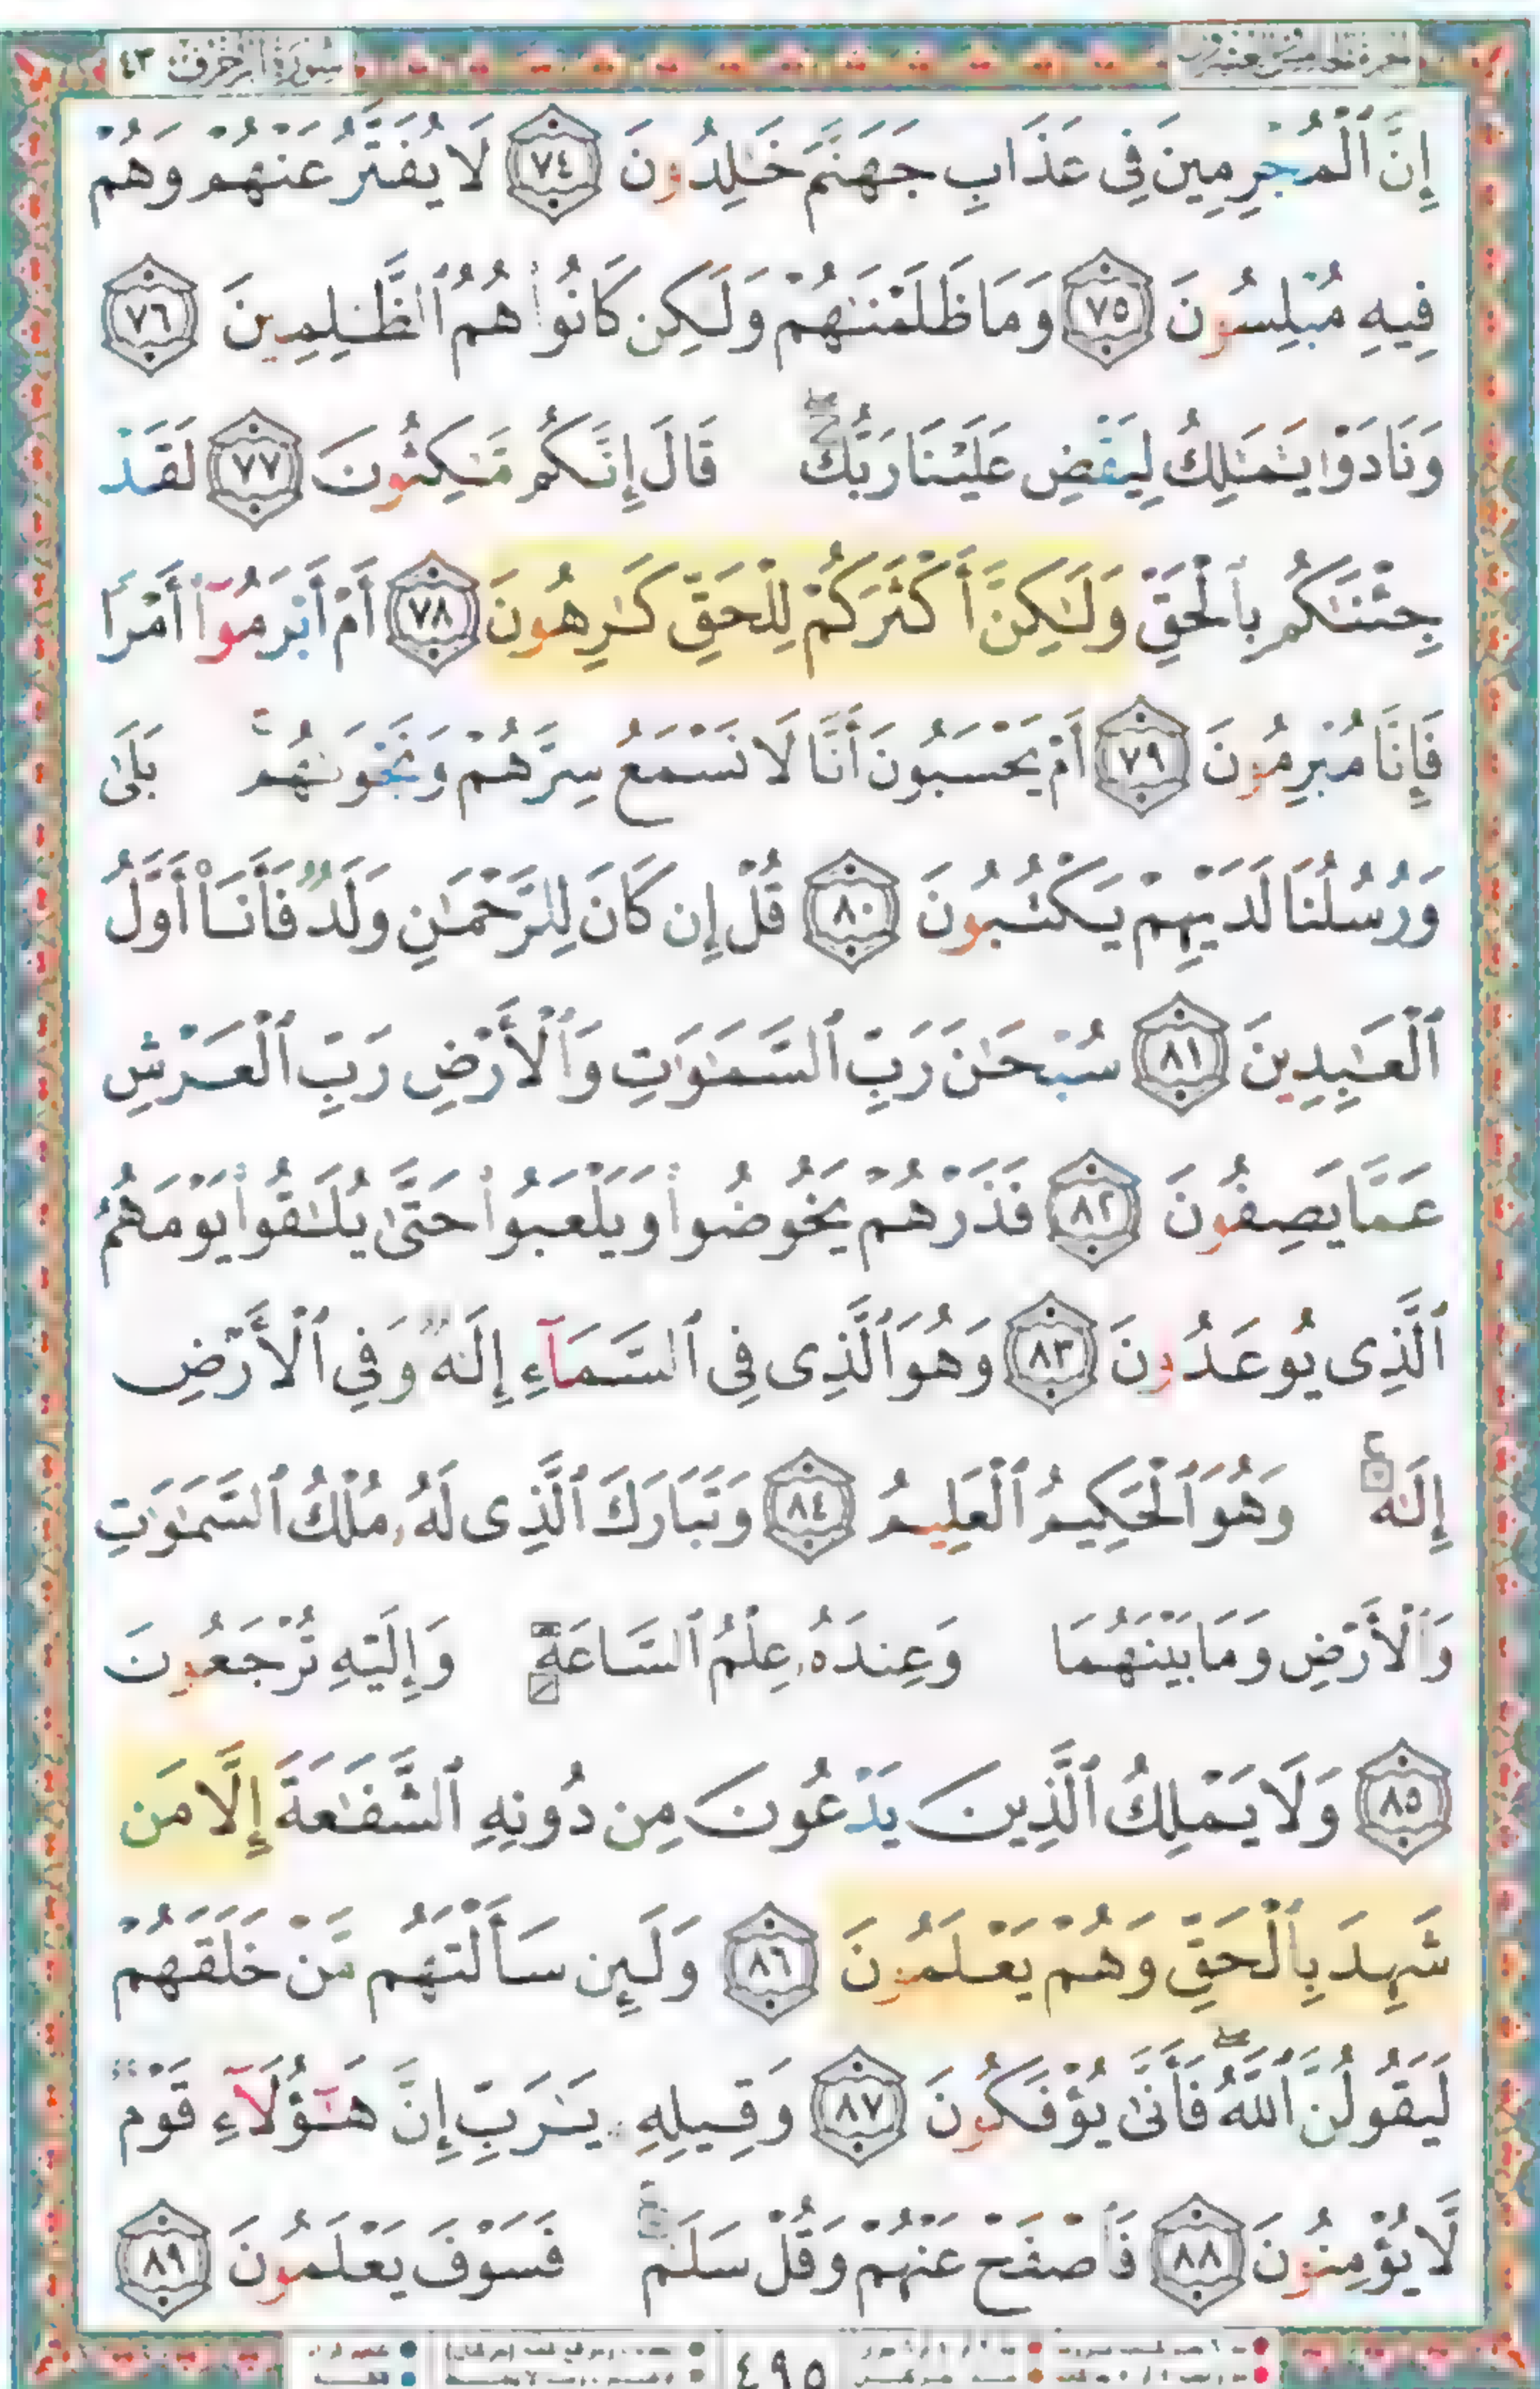 سُورَةُ الزُّخْرُفِ ٤٣
إِنَّ ٱلْمُجْرِمِينَ فِى عَذَابِ جَهَنَّمَ خَٰلِدُونَ ٧٤ لَا يُفَتَّرُ عَنْهُمْ وَهُمْ
فِيهِ مُبْلِسُونَ ٧٥ وَمَا ظَلَمْنَٰهُمْ وَلَٰكِن كَانُوا۟ هُمُ ٱلظَّٰلِمِينَ ٧٦
وَنَادَوْا۟ يَٰمَٰلِكُ لِيَقْضِ عَلَيْنَا رَبُّكَ ۖ قَالَ إِنَّكُم مَّٰكِثُونَ ٧٧ لَقَدْ
جِئْنَٰكُم بِٱلْحَقِّ وَلَٰكِنَّ أَكْثَرَكُمْ لِلْحَقِّ كَٰرِهُونَ ٧٨ أَمْ أَبْرَمُوٓا۟ أَمْرًا
فَإِنَّا مُبْرِمُونَ ٧٩ أَمْ يَحْسَبُونَ أَنَّا لَا نَسْمَعُ سِرَّهُمْ وَنَجْوَىٰهُم ۚ بَلَىٰ
وَرُسُلُنَا لَدَيْهِمْ يَكْتُبُونَ ٨٠ قُلْ إِن كَانَ لِلرَّحْمَٰنِ وَلَدٌ فَأَنَا۠ أَوَّلُ
ٱلْعَٰبِدِينَ ٨١ سُبْحَٰنَ رَبِّ ٱلسَّمَٰوَٰتِ وَٱلْأَرْضِ رَبِّ ٱلْعَرْشِ
عَمَّا يَصِفُونَ ٨٢ فَذَرْهُمْ يَخُوضُوا۟ وَيَلْعَبُوا۟ حَتَّىٰ يُلَٰقُوا۟ يَوْمَهُمُ
ٱلَّذِى يُوعَدُونَ ٨٣ وَهُوَ ٱلَّذِى فِى ٱلسَّمَآءِ إِلَٰهٌ وَفِى ٱلْأَرْضِ
إِلَٰهٌ ۚ وَهُوَ ٱلْحَكِيمُ ٱلْعَلِيمُ ٨٤ وَتَبَارَكَ ٱلَّذِى لَهُۥ مُلْكُ ٱلسَّمَٰوَٰتِ
وَٱلْأَرْضِ وَمَا بَيْنَهُمَا وَعِندَهُۥ عِلْمُ ٱلسَّاعَةِ وَإِلَيْهِ تُرْجَعُونَ
٨٥ وَلَا يَمْلِكُ ٱلَّذِينَ يَدْعُونَ مِن دُونِهِ ٱلشَّفَٰعَةَ إِلَّا مَن
شَهِدَ بِٱلْحَقِّ وَهُمْ يَعْلَمُونَ ٨٦ وَلَئِن سَأَلْتَهُم مَّنْ خَلَقَهُمْ
لَيَقُولُنَّ ٱللَّهُ ۖ فَأَنَّىٰ يُؤْفَكُونَ ٨٧ وَقِيلِهِۦ يَٰرَبِّ إِنَّ هَٰٓؤُلَآءِ قَوْمٌ
لَّا يُؤْمِنُونَ ٨٨ فَٱصْفَحْ عَنْهُمْ وَقُلْ سَلَٰمٌ ۚ فَسَوْفَ يَعْلَمُونَ ٨٩
٤٩٥